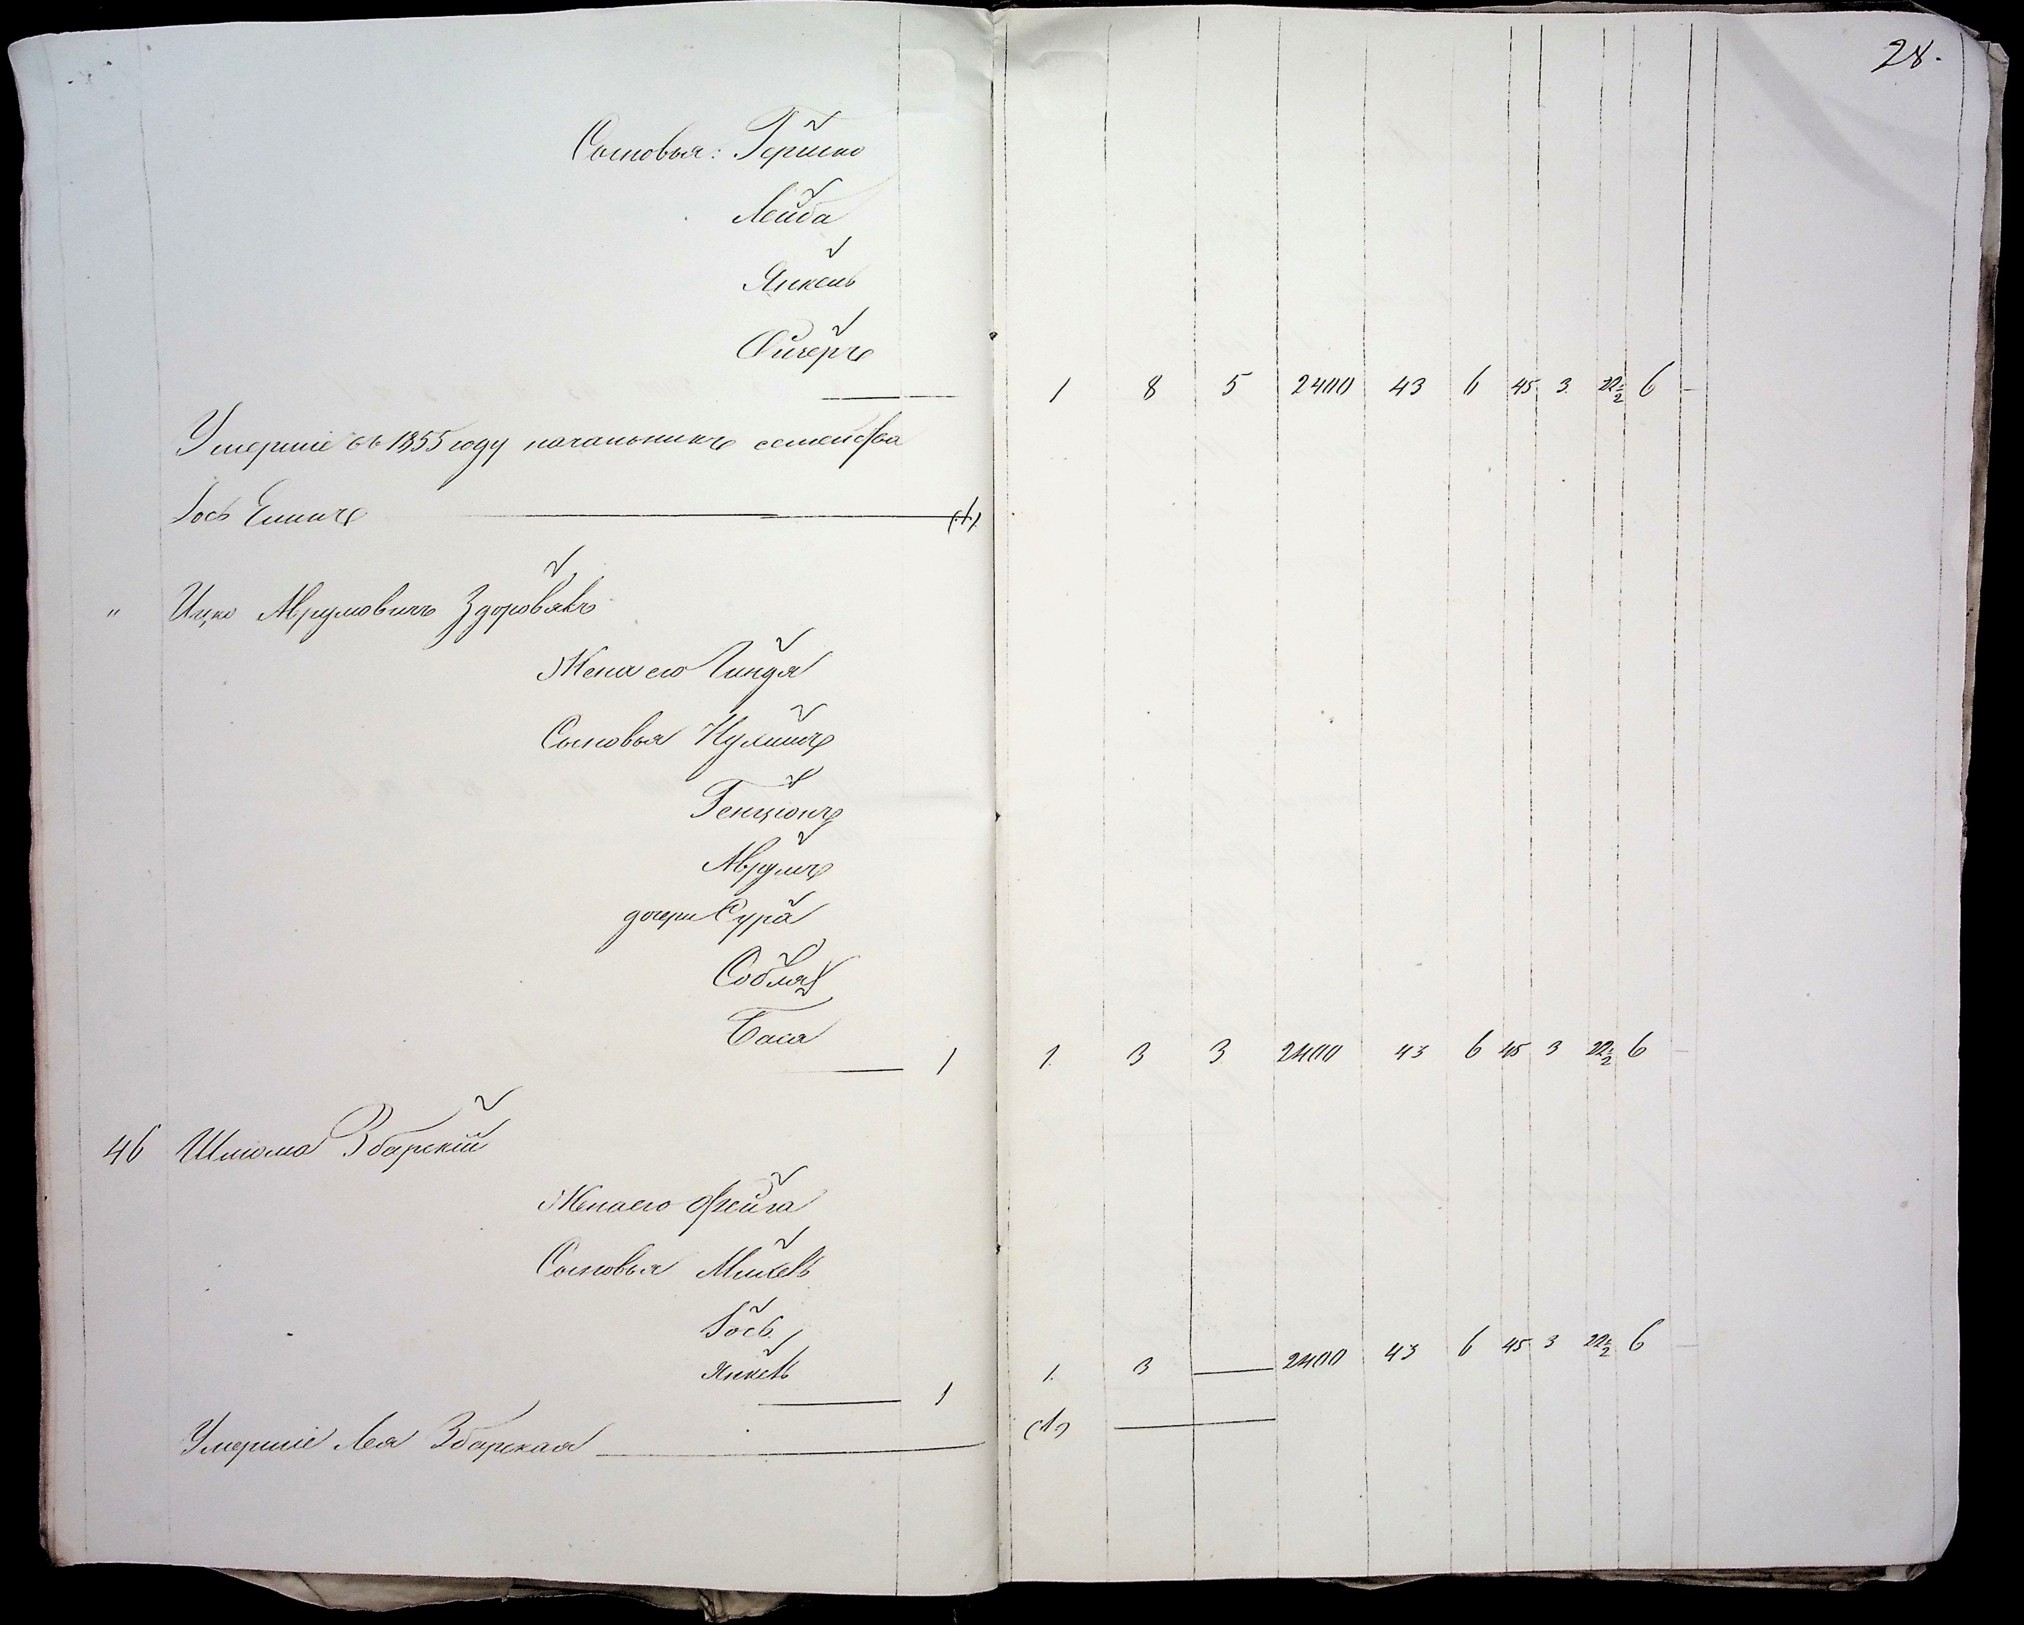 28.
Сыновья: Гершко
Лейба
Янкель
Фишеръ
1 8 5 2400 43 6 45 3 22½ 6 –
Умершіе въ 1855 году начальникъ семейства
Іось
(1)
" Ицко Аврумовичъ Здоровякъ
Жена его Гиндя
Сыновья
Генціонъ
Аврумъ
дочери Сура
Собля
Бася
1 1. 3 3 2400 43 6 45 3 22½ 6 –
46 Шліома Збарскій
Жена его Фейга
Сыновья Михель
Іось
Янкель
1 1. 3 — 2400 43 6 45 3 22½ 6 –
Умершіе Лея Збарская (1)